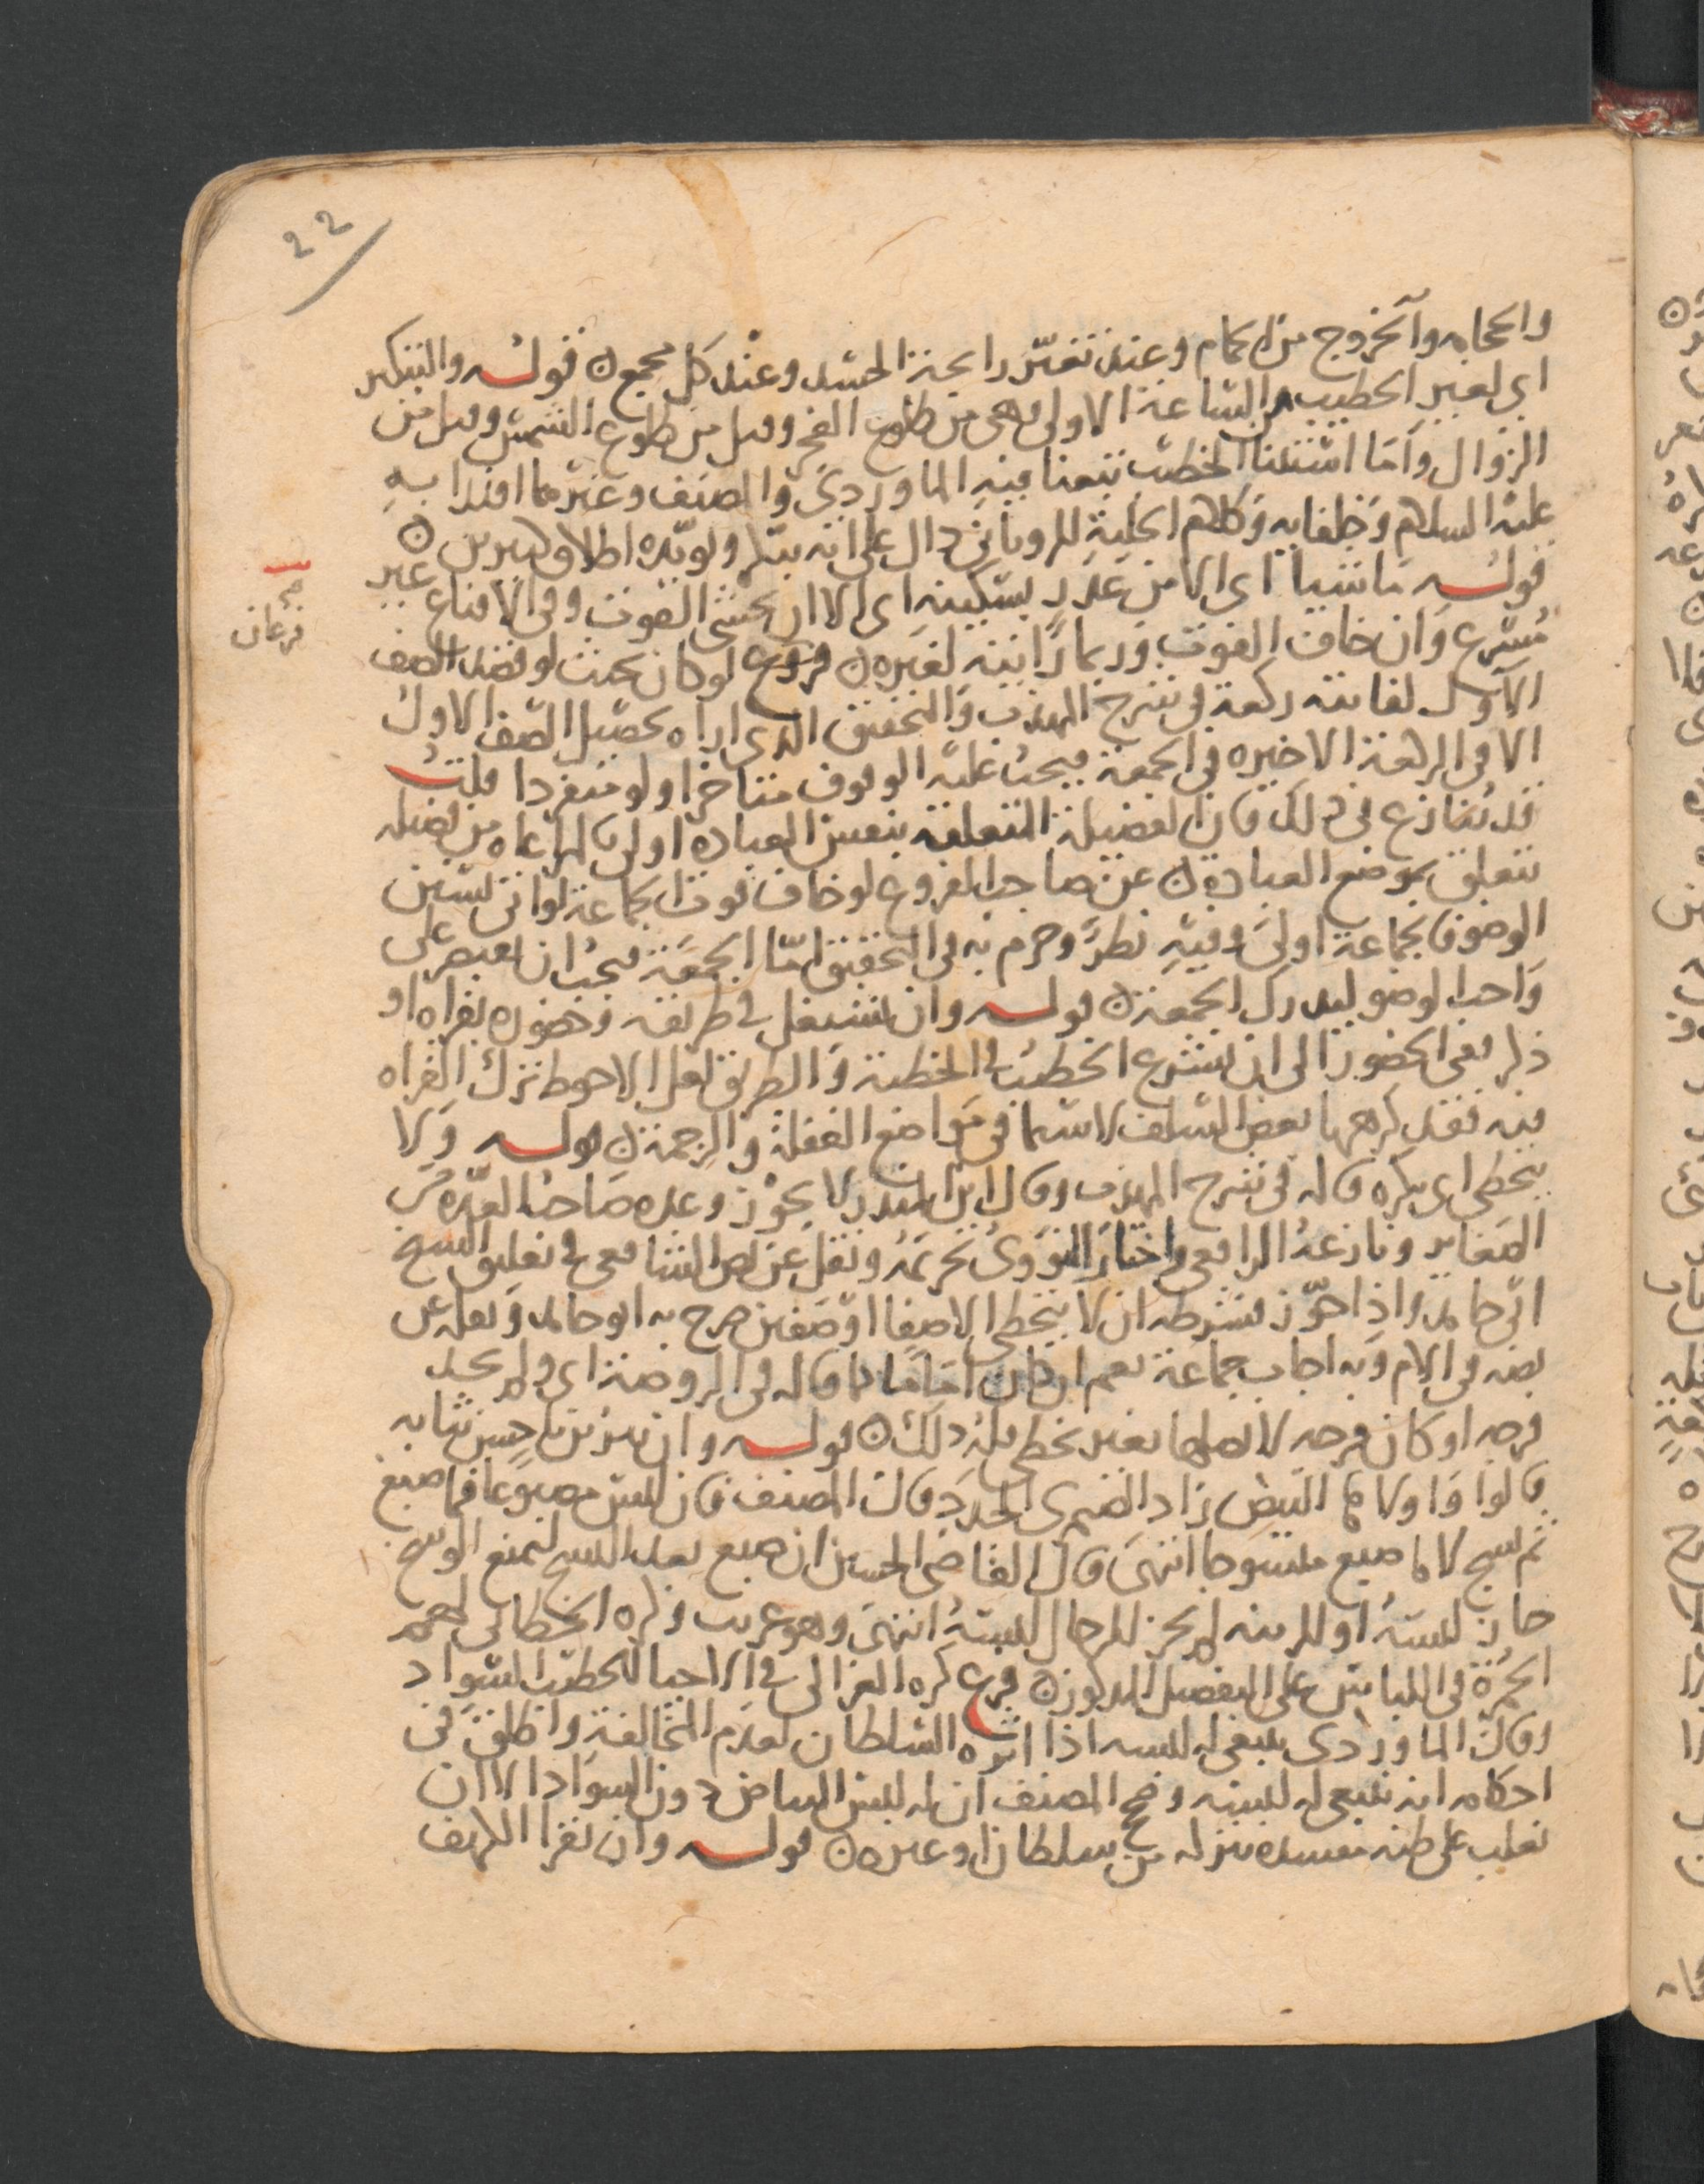 22
والحجامه والخروج من الحمام وعند تغير رايحة الجسد وعند كل مجمع ن قوله والتبكير
اي لغير الخطيب من الساعة الاولى وهي من طلوع الفجر وقيل من طلوع الشمس وقيل من
الزوال واما استثنا الخطيب تبعنا فيه الماوردي والمصنف وغيرهما اقتدا به
عليه السلام وخلفايه وكلام الحلية للروياني دال على انه يبكر ويويده اطلاق كثيرين ن
قوله ماشيا اي الا من عذر بسكينه اي الا ان يخشى الفوت وفي الاقناع غير
مسرع وان خاف الفوت وربما رايته لغيره ن فروع لو كان بحيث لو قصد الصف
صح
فرعان
الاول لفاتته ركعة في شرح المهذب والتحقيق الذي اراه تحصيل الصف الاول
الا في الركعة الاخيره في الجمعة فيجب عليه الوقوف متاخرا ولو منفردا قلت
قد ينازع في ذلك فان الفضيلة المتعلقه بنفس العباده اولى بالمراعاه من فضيله
تتعلق بموضع العباده ن عن صاحب الفروع لو خاف فوت الجماعة لو اتى بسنن
الوضوء فالجماعة اولى وفيه نظر وجزم به في التحقيق اما الجمعة فيجب ان يقتصر على
واجب الوضو ليدرك الجمعة ن قوله وان يشتغل في طريقه وحضوره بقراه او
ذكر يعني الحضور الى ان يشرع الخطيب في الخطبة والطريق لعل الاحوط ترك القراه
فيه فقد كرهها بعض السلف لا سيما في مواضع الغفلة والزحمة ن قوله ولا
يتخطى اي يكره قاله في شرح المهذب وقال ابن المنذر لا يجوز وعده صاحب العده من
الصغاير ونازعه الرافعي واختار النووي تحريمه ونقل عن نص الشافعي في تعليق الشيخ
ابي حامد واذا جوز فشرطه ان لا يتخطى الا صفا او صفين صرح به ابو حامد ونقله عن
نصه في الام وبه اجاب جماعة نعم ان كان اماما كما قاله في الروضة اي ولم يجد
فرجه او كان فرجه لا يصلها بغير تخطي فله ذلك ن قوله وان يتزين باحسن ثيابه
قالوا واولاها البيض زاد الصيمري الجدد وقال المصنف فان لبس مصبوغا فما صبغ
ثم نسج لا ما صبغ منسوجا انتهى قال القاضي الحسين ان صبغ بعد النسج ليمنع الوسخ
جاز لبسه او للزينه لم يجز للرجال لبسه انتهى وهو غريب وذكره الخطابي لهم
الحمرة في اللباس على التفصيل المذكور ن فرع كره الغزالي في الاحيا للخطيب السواد
وقال الماوردي ينبغي له لبسه اذا اثره السلطان لعدم المخالفة واطلق في
احكامه انه ينبغي له لبسه وصحح المصنف ان له لبس البياض دون السواد الا ان
يغلب على ظنه مفسده تنزله من سلطان او غيره ن قوله وان يقرا الكهف